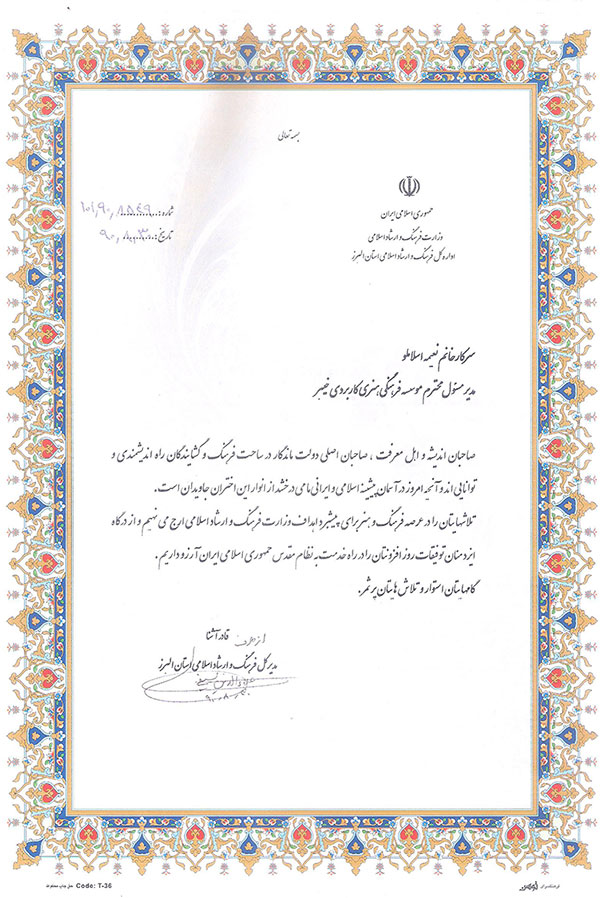 بسمه تعالی
جمهوری اسلامی ایران
وزارت فرهنگ و ارشاد اسلامی
اداره کل فرهنگ و ارشاد اسلامی استان البرز
شماره:
تاریخ:
سرکار خانم نعیمه اسلاملو
مدیر مسئول محترم موسسه فرهنگی هنری کاربردی خیبر
صاحبان اندیشه و اهل معرفت ، صاحبان اصلی دولت ماندگار در ساحت فرهنگ و گشایندگان راه اندیشمندی و
توانایی اند و آنچه امروز در آسمان پیشینه اسلامی و ایرانی ما می درخشد از انوار این اختران جاویدان است.
تلاشهایتان را در عرصه فرهنگ و هنر برای پیشبرد اهداف وزارت فرهنگ و ارشاد اسلامی ارج می نهیم و از درگاه
ایزد منان توفیقات روز افزونتان را در راه خدمت به نظام مقدس جمهوری اسلامی ایران آرزو داریم .
گامهایتان استوار و تلاش هایتان پر ثمر.
قادر آشنا
از طرف
مدیر کل فرهنگ و ارشاد اسلامی استان البرز
حق چاپ محفوظ Code: T-36